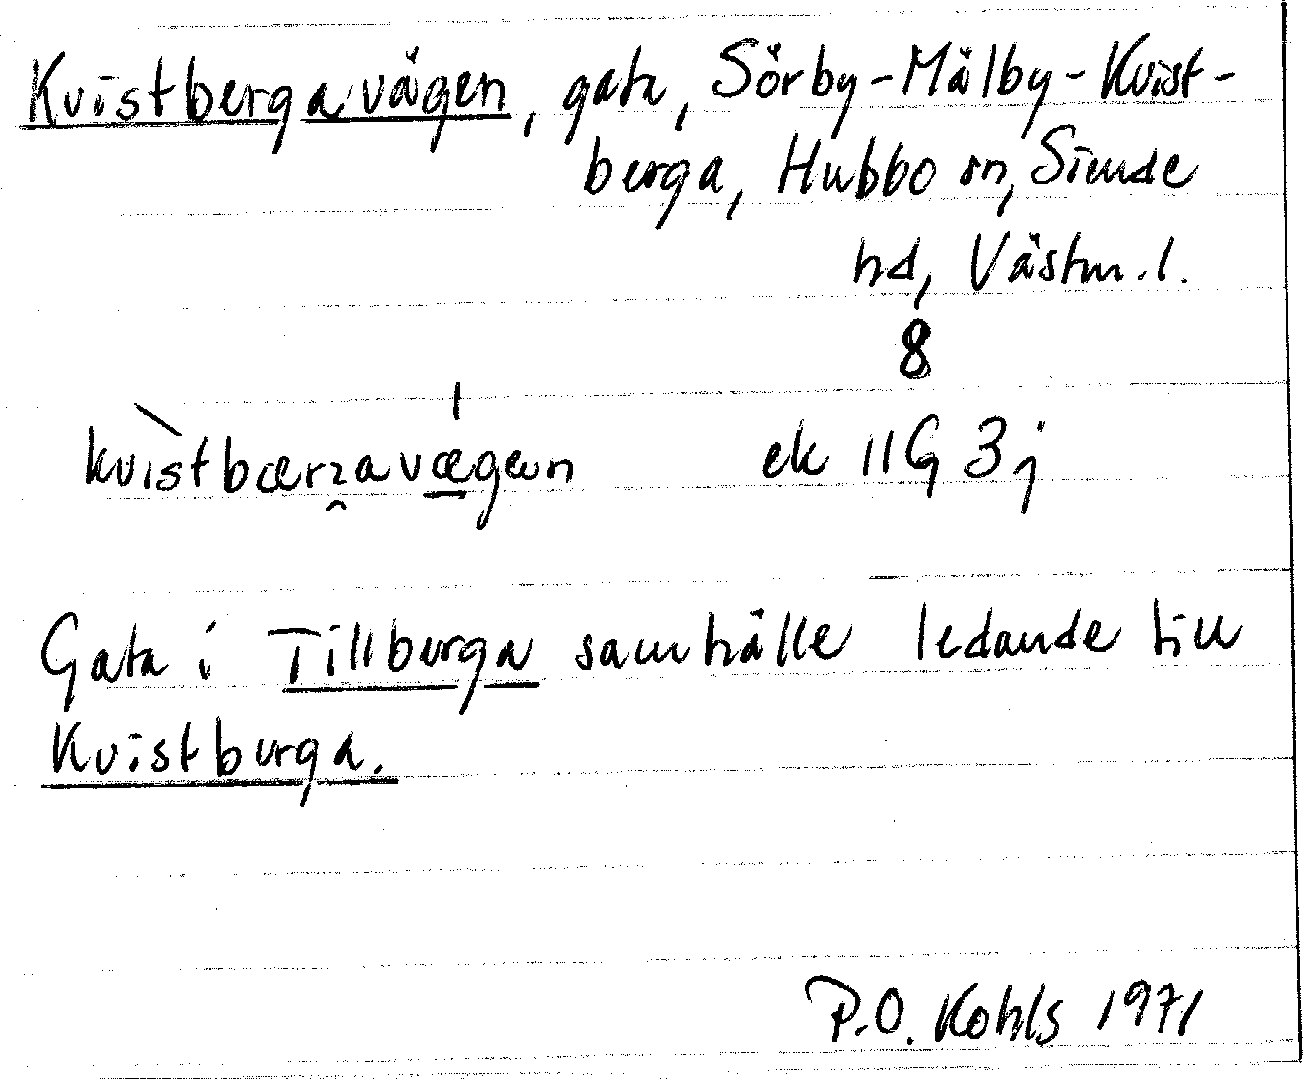 Kvistbergavägen, gata, Sörby-Mälby-Kvist-
berga, Hubbo sn, Siende
hd, Västm. l.
8
kvistbærzavægæn ek 11G 3j
Gata i Tillberga samhälle ledande till
Kvistberga.
P.O. Kohls 1971